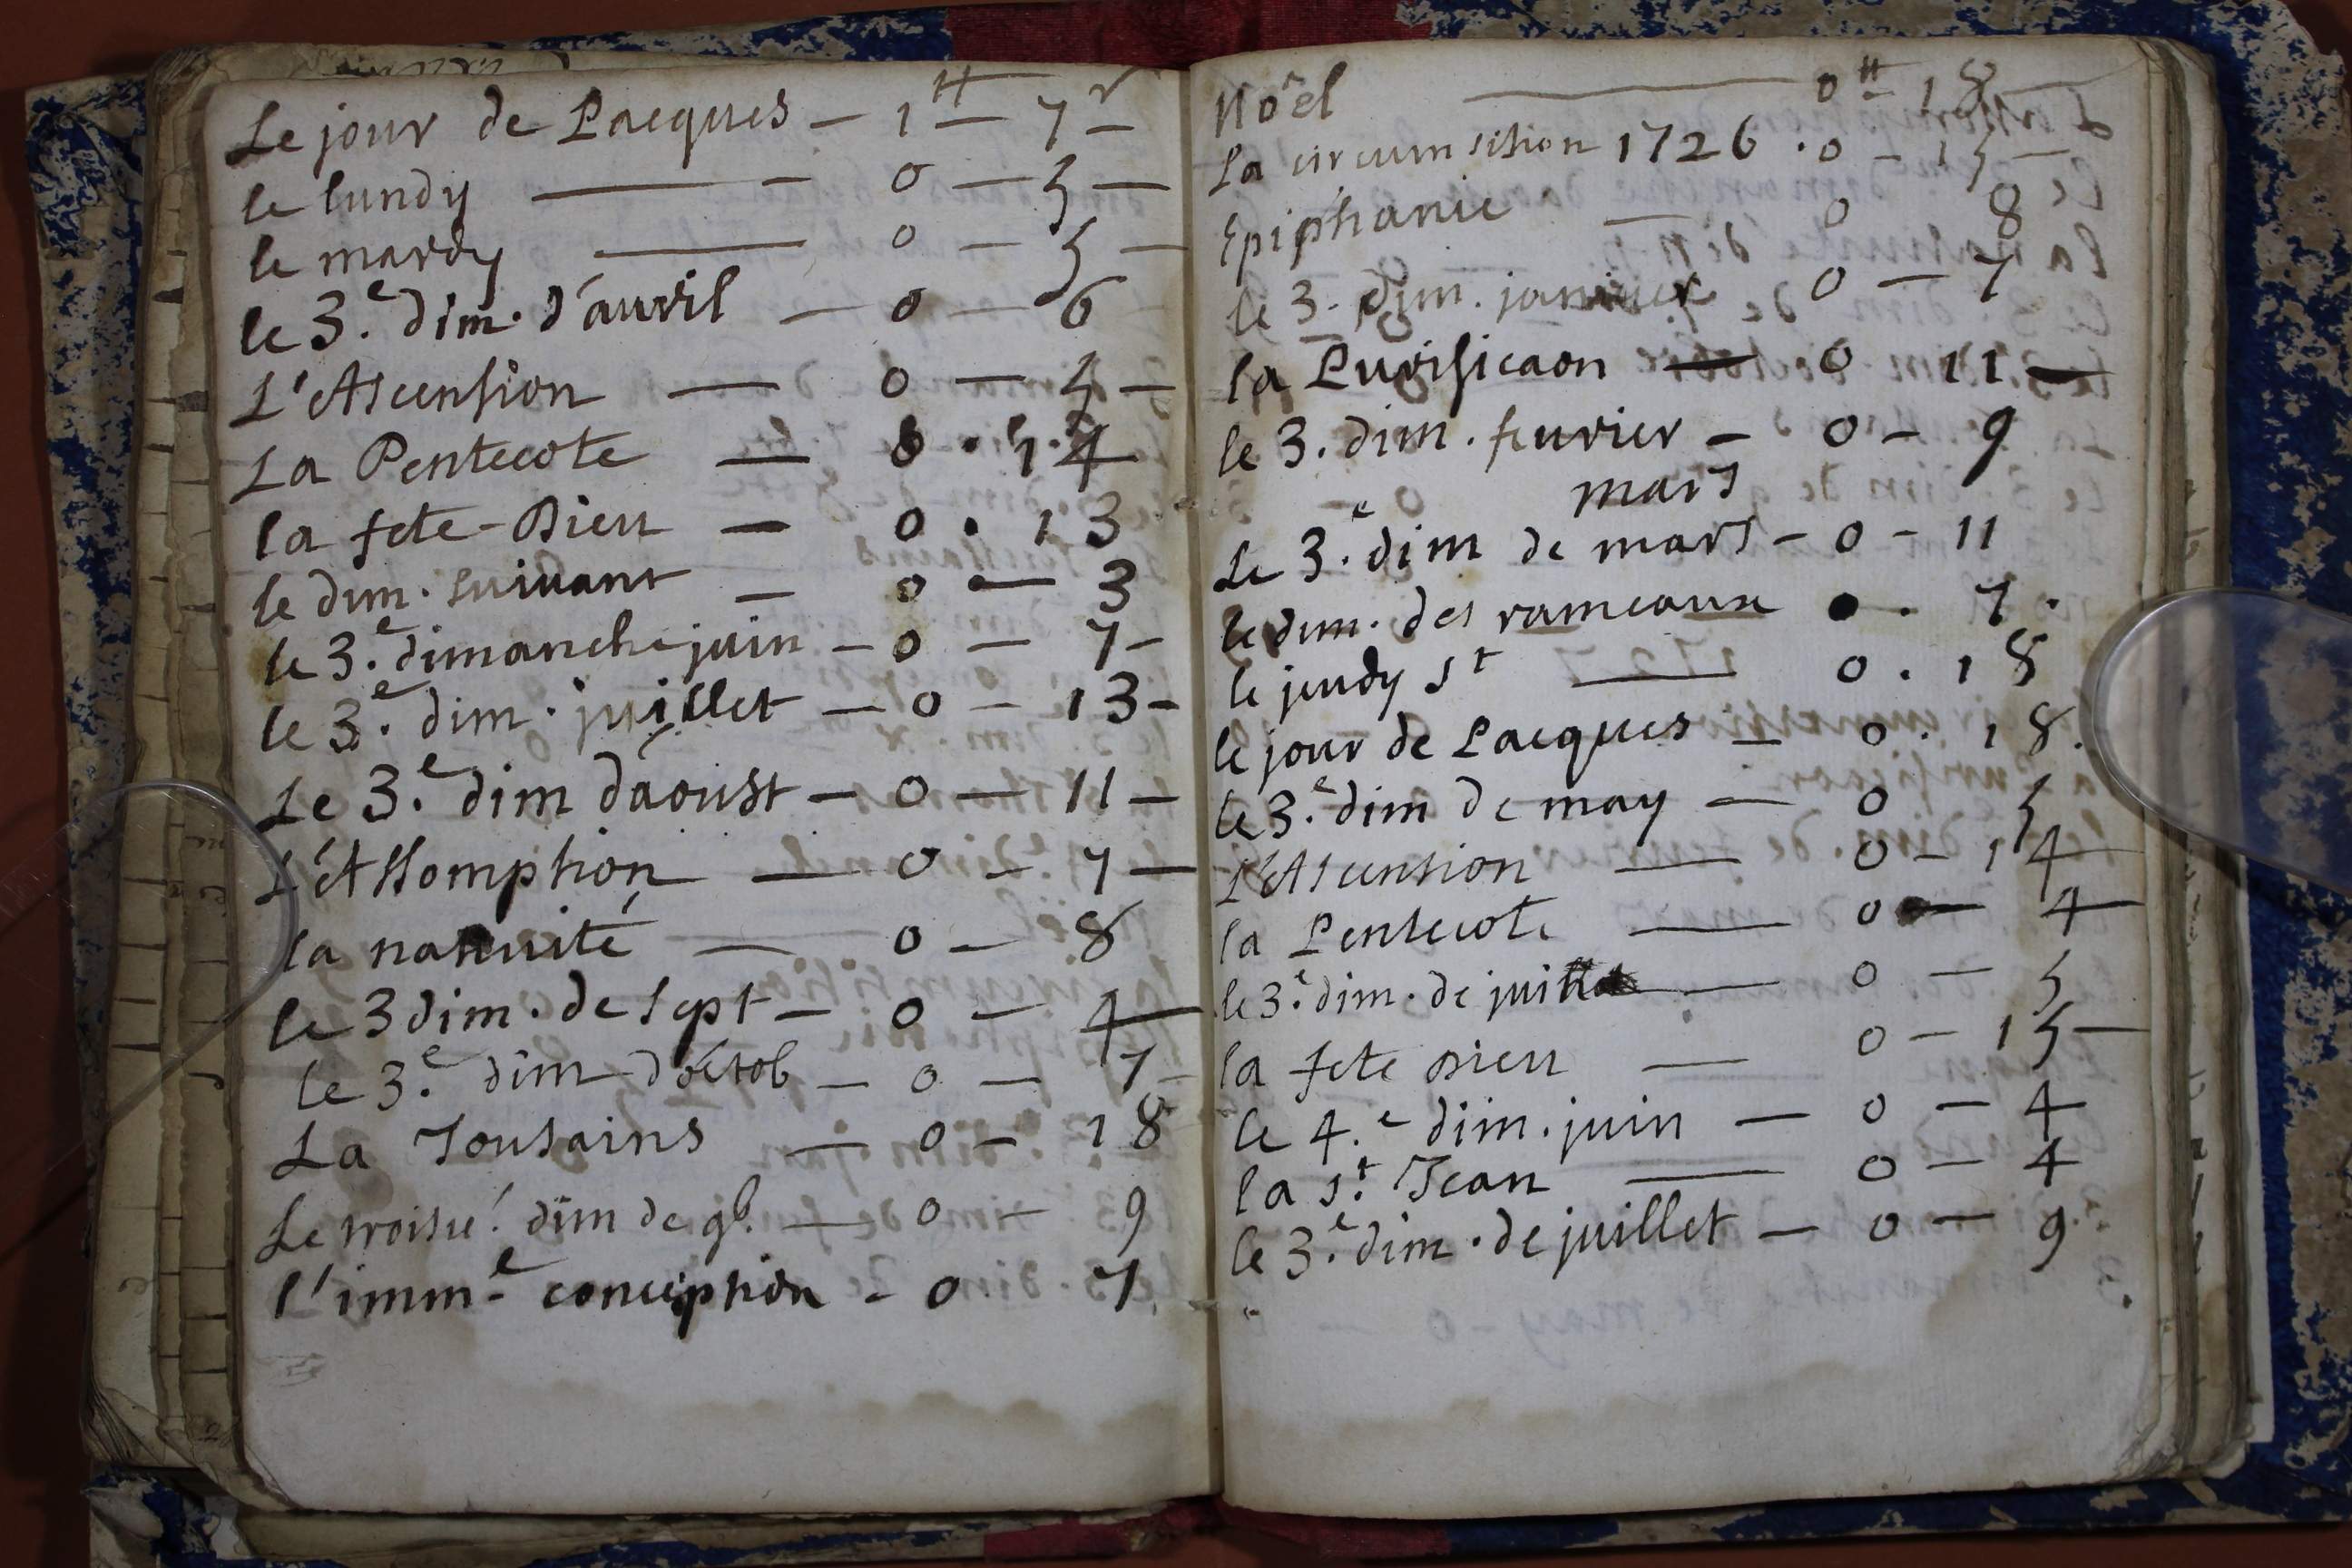 Le jour de Pacques — 1 ₶ — 7 s
le lundy — 0 — 5 —
le mardy — 0 — 5 —
le 3.e dim. d'auril — 0 — 6
L'Ascension — 0 — 5 —
La Pentecote — 0 . 14
la fete-Dieu — 0 . 13
le dim. suiuant — 0 — 3
le 3.e dimanche juin — 0 — 7 —
le 3.e dim. juillet — 0 — 13 —
Le 3.e dim d'aoust — 0 — 11 —
L'Assomption — 0 — 7 —
la natiuité — 0 — 8
le 3 dim. de sept — 0 — 4
le 3.e dim d'octob — 0 — 7
La Tousains — 0 — 18
Le troisie! dim de 9b. — 0 — 9
l'imm.e conception - 0 7.
Noël — 0 ₶ 18
La circumsition 1726 . 0 — 15 —
Epiphanie — 0 8
le 3. dim. januier 0 — 7
la Purificaon — 0 11 —
le 3. dim. feurier — 0 — 9
mars
Le 3.e dim de mars — 0 — 11
le dim. des rameaux 0 . 7 .
le jeudy st — 0 . 18
le jour de Pacques — 0 . 18.
le 3.e dim de may — 0 5
L'Ascension — 0 — 14
la Pentecote — 0 — 4
le 3.e dim. de — 0 — 5
la fete Dieu — 0 — 15 —
le 4.e dim. juin — 0 — 4
la st. Jean — 0 — 4
le 3.e dim. de juillet — 0 — 9